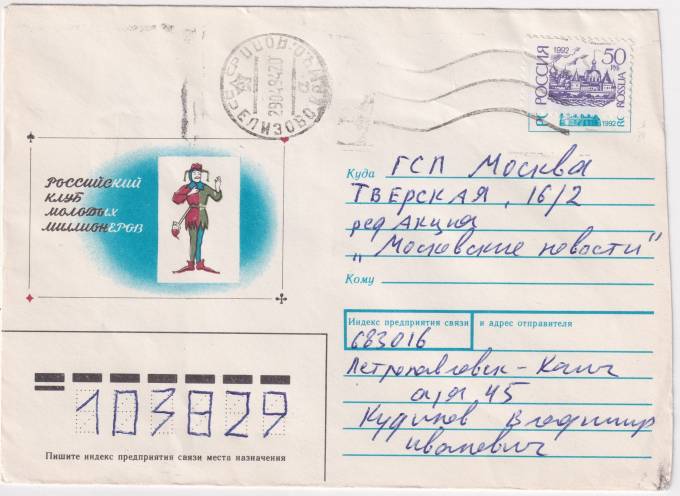 29049420
ЕЛИЗОВО
1992
РОССИЯ
50
ROSSIJA
1992
РОССИЙСКИЙ
КЛУБ
МОЛОДЫХ
МИЛЛИОНЕРОВ
Куда ГСП Москва
ТВЕРСКАЯ, 16/2
ред Акция
„Московские новости"
Кому
Индекс предприятия связи и адрес отправителя
683016
Петропавловск-Камч
а/я 45
Кудинов Владимир
Иванович
103829
Пишите индекс предприятия связи места назначения